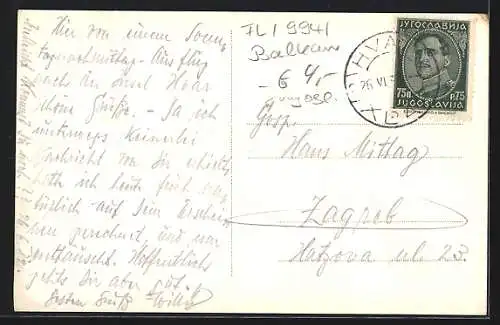 Hier von einem Sonn-
tagnachmittag-Ausflug
nach der Insel Hvar
schöne Grüße. - Da ich
unterwegs keinerlei
Nachricht von Dir erhielt,
hatte ich heute fest
auf Dein Erschei-
nen gerechnet und war
enttäuscht. Hoffentlich
gehts Dir aber gut.
Besten Gruß Willy
FL 1 9941
Balkan
HVAR
ЈУГОСЛАВИЈА
75п. P.75
JUGOSLAVIJA
Gosp.
Hans Mittag
Zagreb
Hatzova ul. 23.